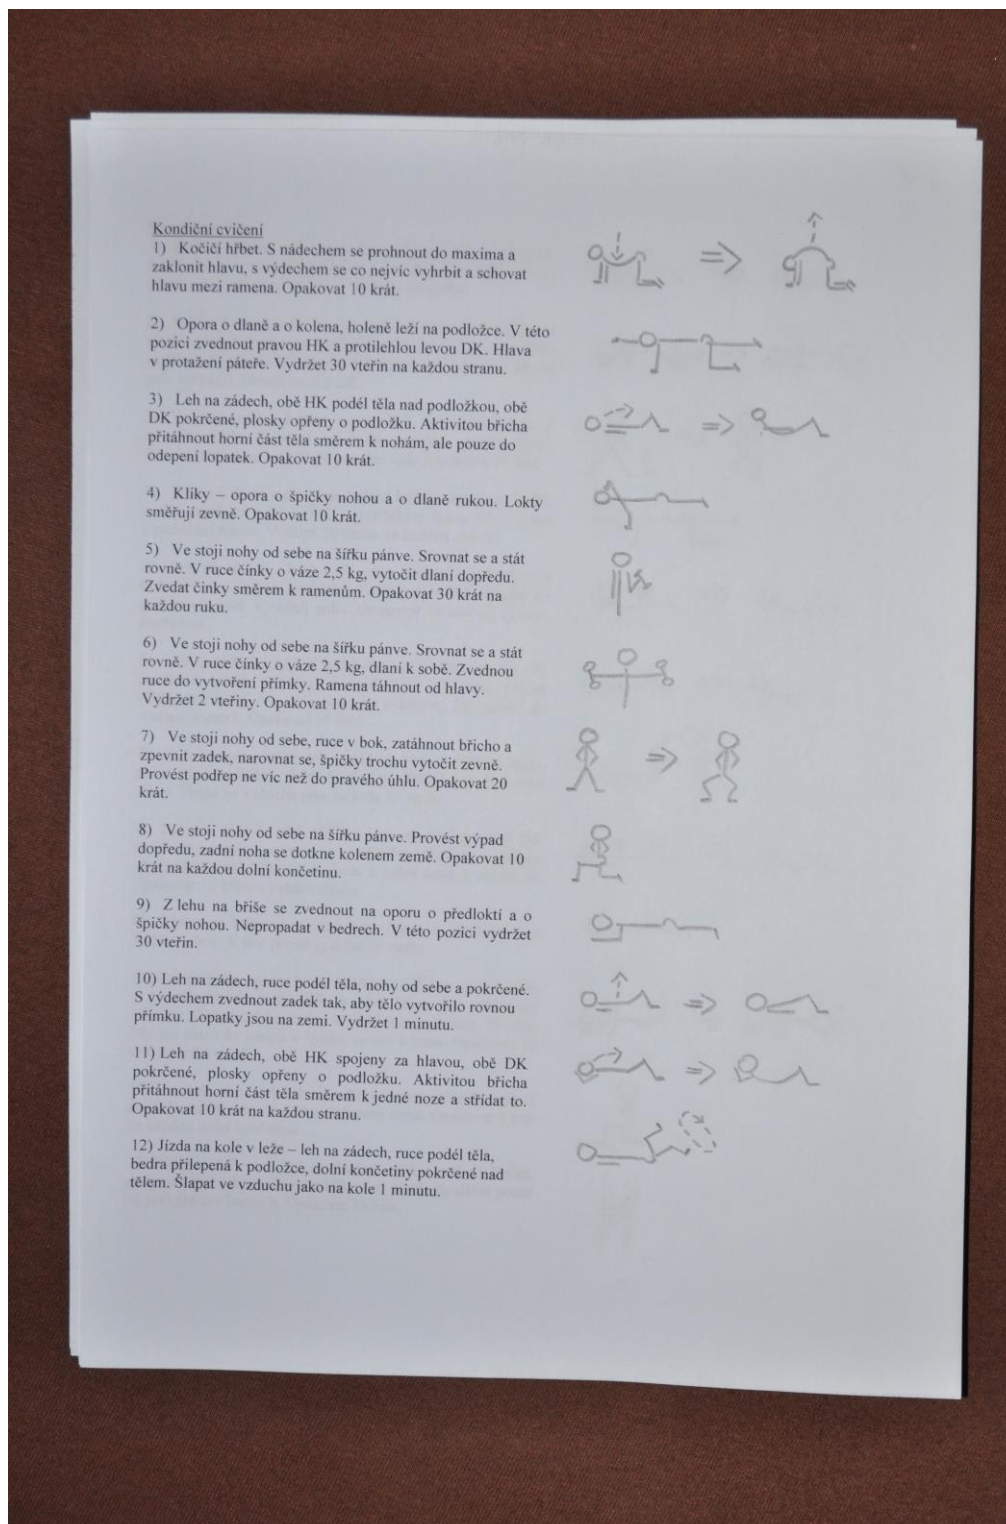 Kondiční cvičení
1) Kočičí hřbet. S nádechem se prohnout do maxima a
zaklonit hlavu, s výdechem se co nejvíc vyhrbit a schovat
hlavu mezi ramena. Opakovat 10 krát.
2) Opora o dlaně a o kolena, holeně leží na podložce. V této
pozici zvednout pravou HK a protilehlou levou DK. Hlava
v protažení páteře. Vydržet 30 vteřin na každou stranu.
3) Leh na zádech, obě HK podél těla nad podložkou, obě
DK pokrčené, plosky opřeny o podložku. Aktivitou břicha
přitáhnout horní část těla směrem k nohám, ale pouze do
odepení lopatek. Opakovat 10 krát.
4) Kliky – opora o špičky nohou a o dlaně rukou. Lokty
směřují zevně. Opakovat 10 krát.
5) Ve stoji nohy od sebe na šířku pánve. Srovnat se a stát
rovně. V ruce čínky o váze 2,5 kg, vytočit dlaní dopředu.
Zvedat činky směrem k ramenům. Opakovat 30 krát na
každou ruku.
6) Ve stoji nohy od sebe na šířku pánve. Srovnat se a stát
rovně. V ruce čínky o váze 2,5 kg, dlaní k sobě. Zvednou
ruce do vytvoření přímky. Ramena táhnout od hlavy.
Vydržet 2 vteřiny. Opakovat 10 krát.
7) Ve stoji nohy od sebe, ruce v bok, zatáhnout břicho a
zpevnit zadek, narovnat se, špičky trochu vytočit zevně.
Provést podřep ne víc než do pravého úhlu. Opakovat 20
krát.
8) Ve stoji nohy od sebe na šířku pánve. Provést výpad
dopředu, zadní noha se dotkne kolenem země. Opakovat 10
krát na každou dolní končetinu.
9) Z lehu na břiše se zvednout na oporu o předloktí a o
špičky nohou. Nepropadat v bedrech. V této pozici vydržet
30 vteřin.
10) Leh na zádech, ruce podél těla, nohy od sebe a pokrčené.
S výdechem zvednout zadek tak, aby tělo vytvořilo rovnou
přímku. Lopatky jsou na zemi. Vydržet 1 minutu.
11) Leh na zádech, obě HK spojeny za hlavou, obě DK
pokrčené, plosky opřeny o podložku. Aktivitou břicha
přitáhnout horní část těla směrem k jedné noze a střídat to.
Opakovat 10 krát na každou stranu.
12) Jízda na kole v leže – leh na zádech, ruce podél těla,
bedra přilepená k podložce, dolní končetiny pokrčené nad
tělem. Šlapat ve vzduchu jako na kole 1 minutu.